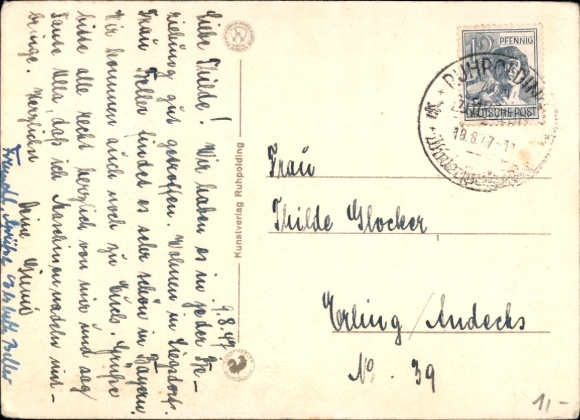 9.8.47
Liebe Thilde! Wir haben es in jeder Be-
ziehung gut getroffen. Wohnen in Siegsdorf.
Frau Feller findet es sehr schön in Bayern,
Wir kommen auch noch zu Euch. Grüße
bitte alle recht herzlich von mir und sag
Tante Ulla, daß ich Maschinennadeln mit-
bringe. Herzlichst
Deine
Freundl. Grüße
Kunstverlag Ruhpolding
12 PFENNIG
DEUTSCHE POST
RUHPOLDING
10.8.47-11
Frau
Thilde Glocker
Erling/Andechs
No. 39
1,-